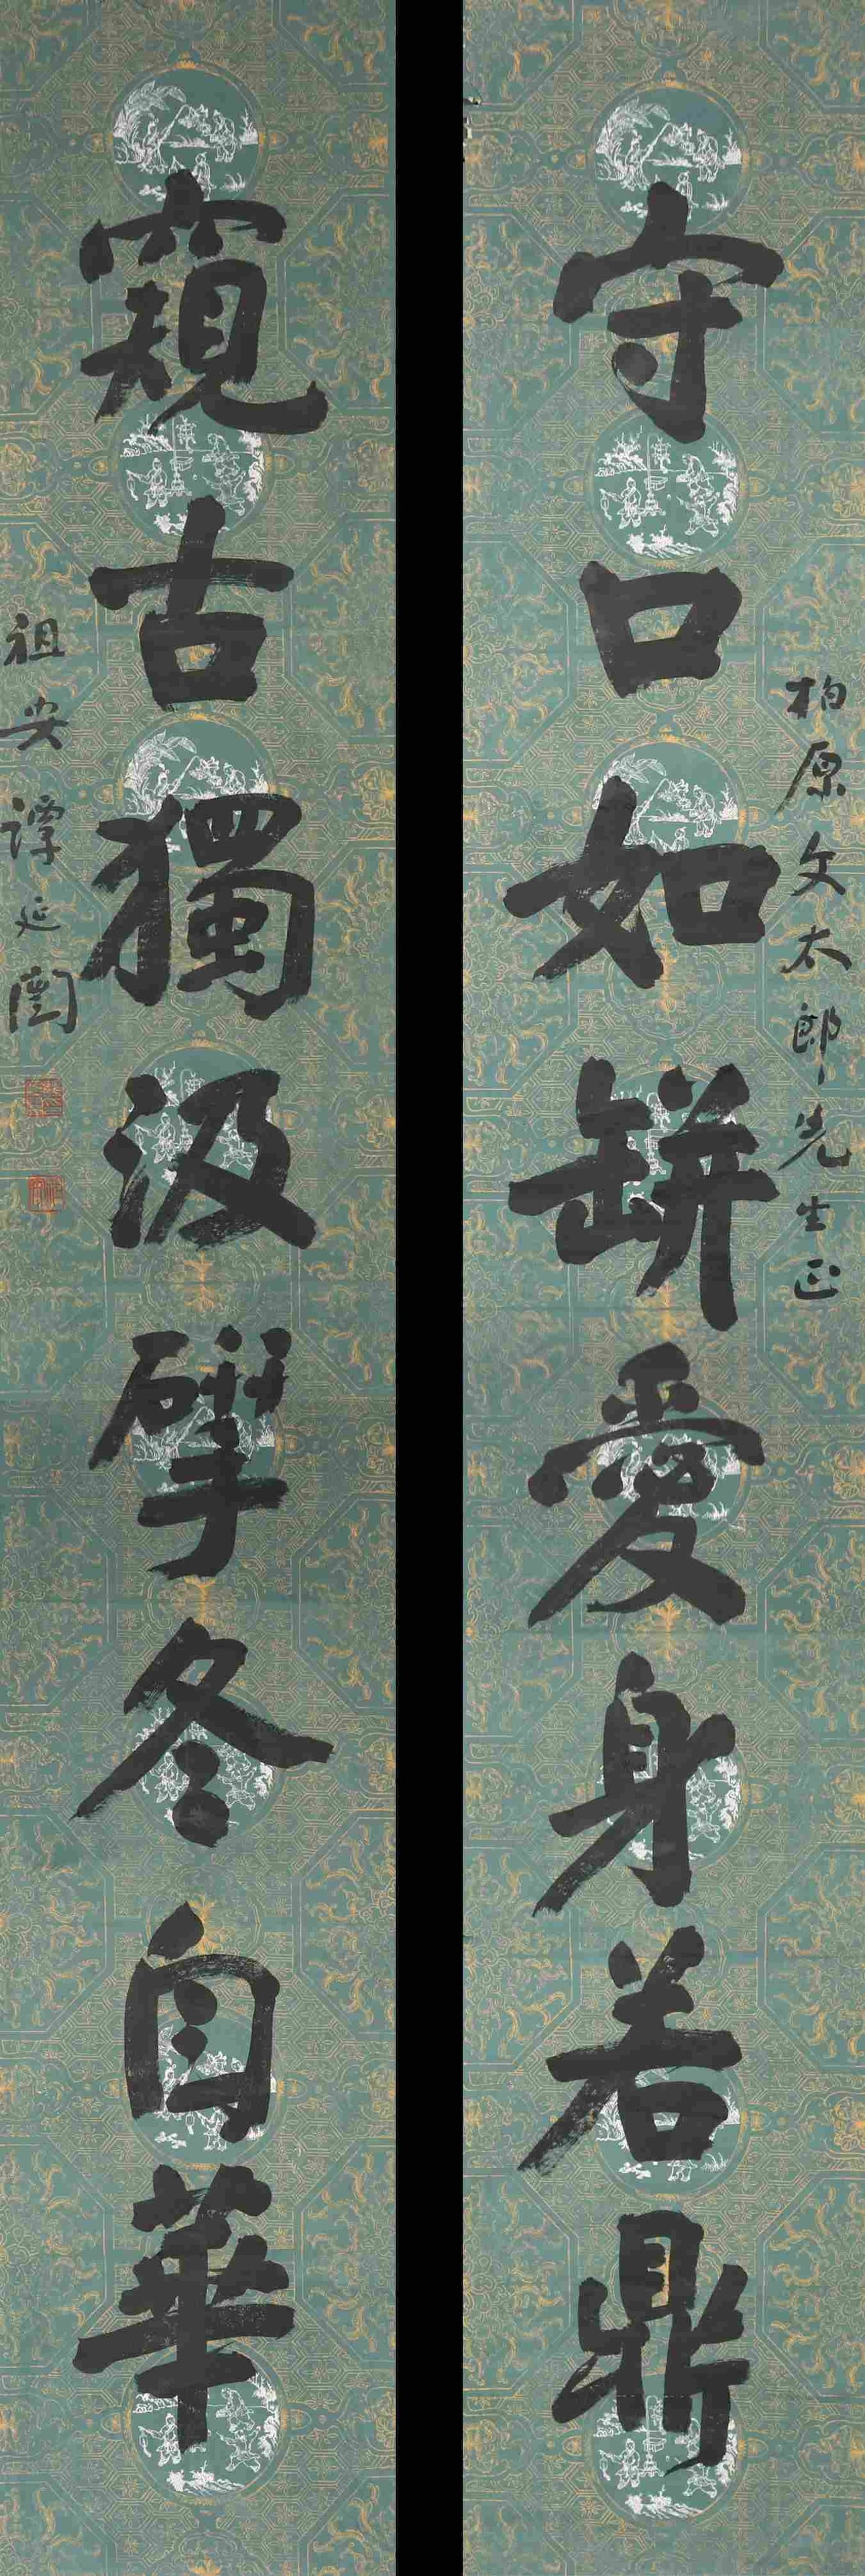 柏原文太郎先生正
守口如缾愛身若鼎
窺古獨汲揅冬自華
祖安譚延闓